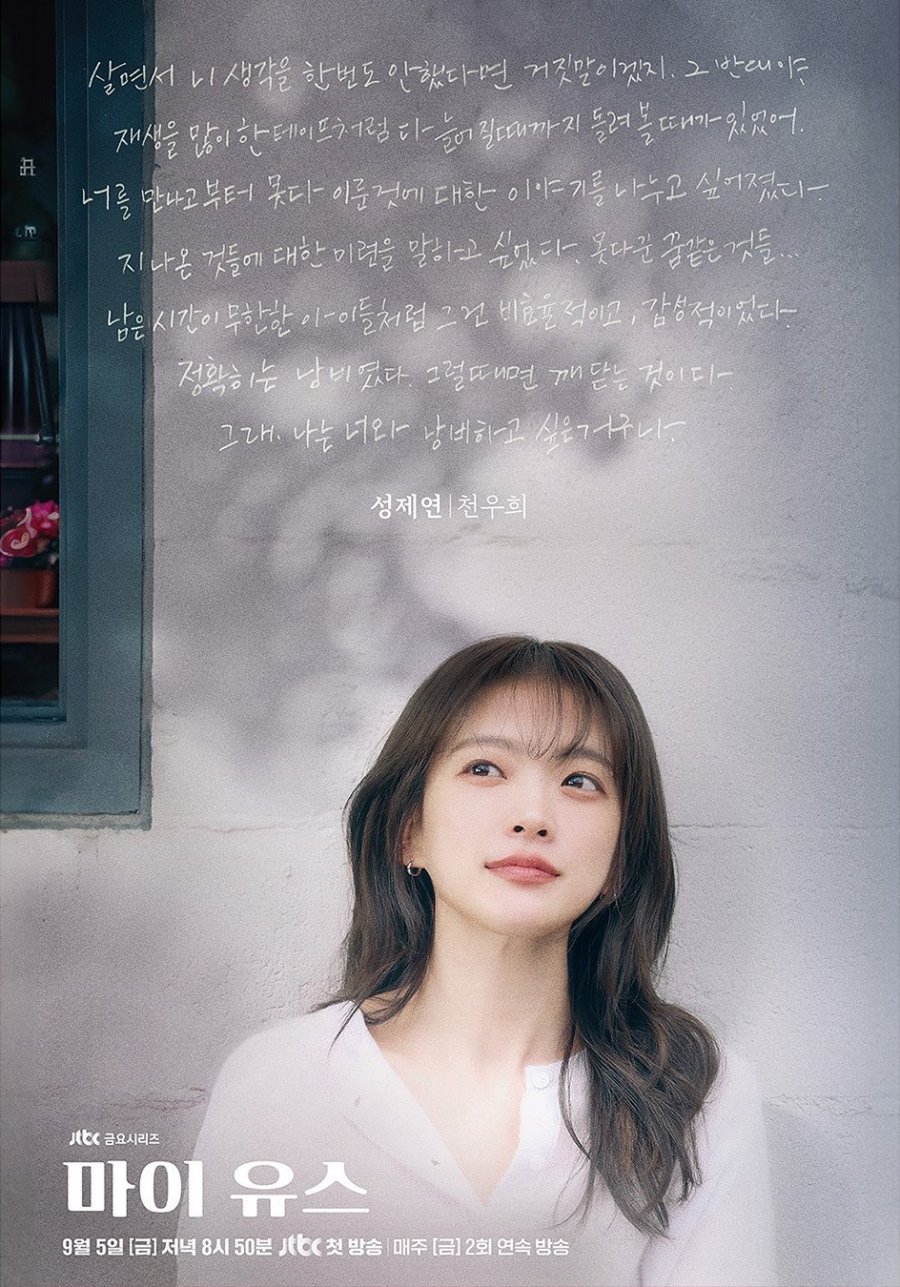 살면서 니 생각을 한번도 안했다면 거짓말이겠지. 그 반대야
재생을 많이 한 테이프처럼 다 늘어질때까지 돌려 볼때가 있었어.
너를 만나고부터 못다 이룬것에 대한 이야기를 나누고 싶어졌다.
지나온 것들에 대한 미련을 말하고 싶었다. 못다꾼 꿈같은 것들...
남은 시간이 무한한 아이들처럼 그건 비효율적이고, 감성적이었다.
정확히는 낭비였다. 그럴때면 깨닫는 것이다
그래. 나는 너와 낭비하고 싶은거구나.
성제연|천우희
JTBC 금요시리즈
마이 유스
9월 5일 [금] 저녁 8시 50분 JTBC 첫 방송 | 매주 [금] 2회 연속 방송